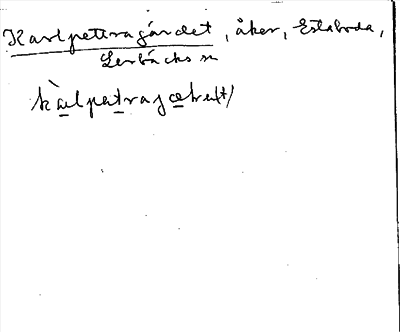 Karlpettragärdet, åker, Estaboda,
Lerbäcks sn
kàlpatrajæḷe(t)